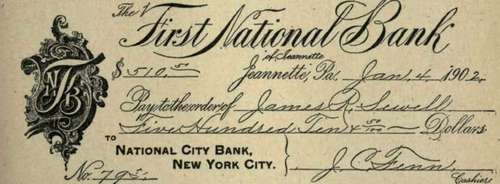 The First National Bank
of Jeannette
$510.50 Jeannette, Pa. Jan. 4 1902.
Pay to the order of James R. Sewell
Five Hundred Ten & 50/100 Dollars
TO NATIONAL CITY BANK,
NEW YORK CITY.
J. C. Fenn
No. 795. Cashier
FNB